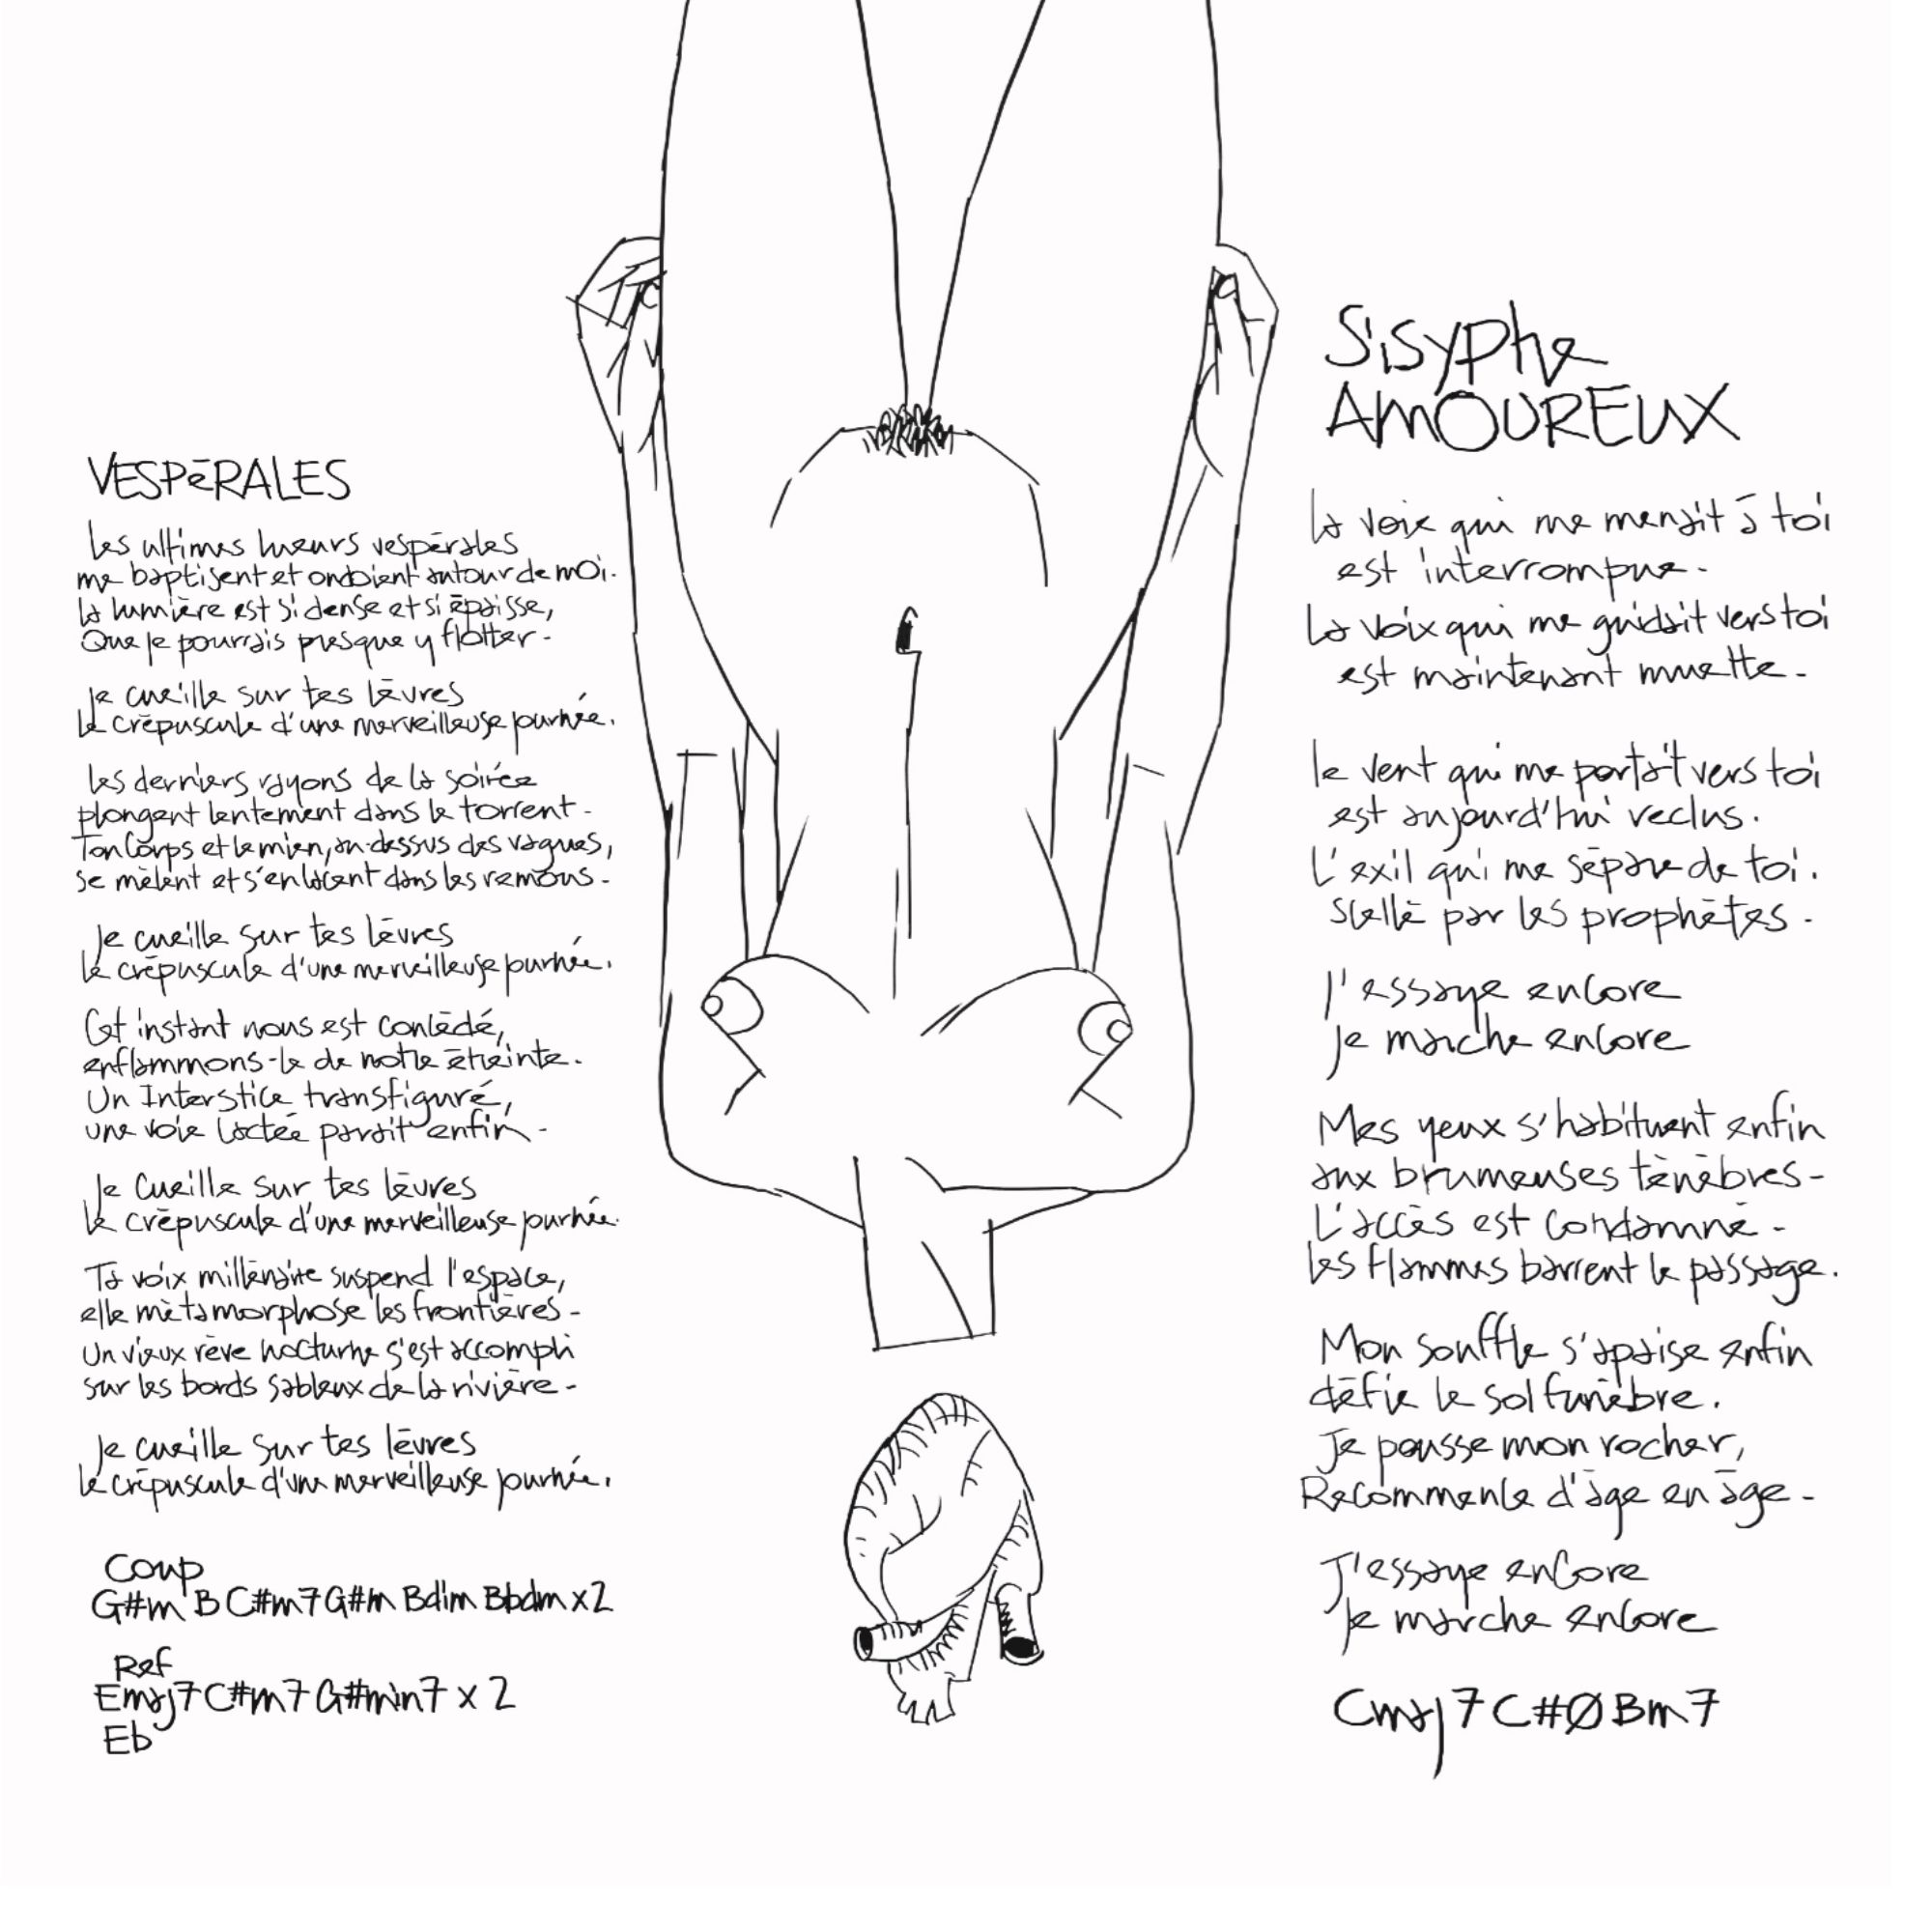 VESPéRALES
Les ultimes lueurs vespérales
me baptisent et ondoient autour de moi.
La lumière est si dense et si épaisse,
Que je pourrais presque y flotter.
Je cueille sur tes lèvres
Le crépuscule d'une merveilleuse journée.
Les derniers rayons de la soirée
plongent lentement dans le torrent.
Ton corps et le mien, au-dessus des vagues,
se mêlent et s'enlacent dans les remous.
Je cueille sur tes lèvres
Le crépuscule d'une merveilleuse journée.
Cet instant nous est concédé,
enflammons-le de notre étreinte.
Un Interstice transfiguré,
une voie lactée paraît enfin.
Je Cueille sur tes lèvres
le crépuscule d'une merveilleuse journée.
Ta voix millénaire suspend l'espace,
elle métamorphose les frontières.
Un vieux rêve nocturne s'est accompli
sur les bords sableux de la rivière.
Je cueille sur tes lèvres
le crépuscule d'une merveilleuse journée.
Coup
G#m B C#m7 G#m Bdim Bbdm x2
Ref
Emaj7 C#m7 G#min7 x 2
Eb
Sisyphe
AMOUREUX
La voie qui me menait à toi
est interrompue.
La voix qui me guidait vers toi
est maintenant muette.
le vent qui me portait vers toi
est aujourd'hui reclus.
L'exil qui me sépare de toi.
scellé par les prophètes.
J'essaye encore
Je marche encore
Mes yeux s'habituent enfin
aux brumeuses ténèbres.
L'accès est condamné.
les flammes barrent le passage.
Mon souffle s'apaise enfin
défie le sol funèbre.
Je pousse mon rocher,
Recommence d'âge en âge.
J'essaye encore
Je marche encore
Cmaj7 C#Ø Bm7